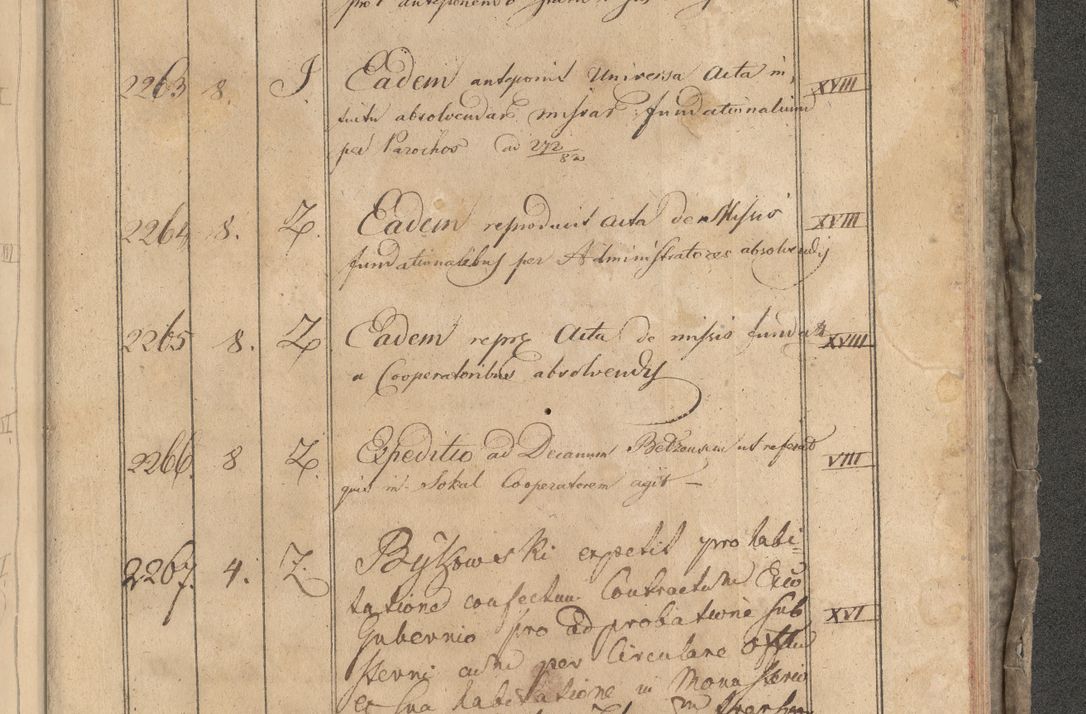 2263 8. J. Eadem anteponit Universa Acta in, XVIII
tuitu absolvendar missar fundationalium
per Parochos ad 272/82
2264 8. Z. Eadem reproducit Acta de Missis XVIII
fundationalibus per Administratores absolvendis
2265 8. Z Eadem repr Acta de missis funda XVIII
a Cooperatoribus absolvendis
2266. 8 Z. Expeditio ad Decanum ut referat VIII
quis in Sokal Cooperatorem agit —
2267. 4. Z. expetit pro habi=
tatione confectum Contractum
Gubernio pro adprobatione sub XVI
cum per Circulare
et sua habitatione in Monasterio